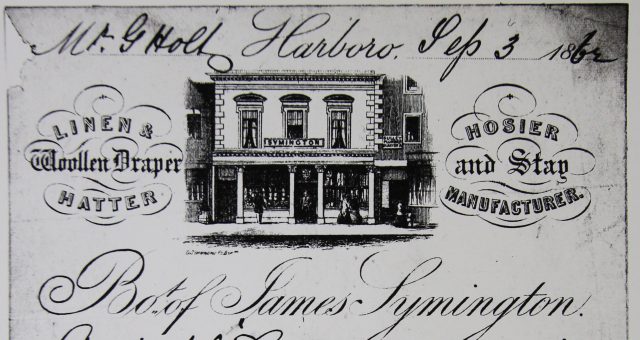 Mr. G Holt Harboro. Sep 3 1862
LINEN &
Woollen Draper
HATTER
SYMINGTON
HOSIER
and Stay
MANUFACTURER.
Bot. of James Symington.